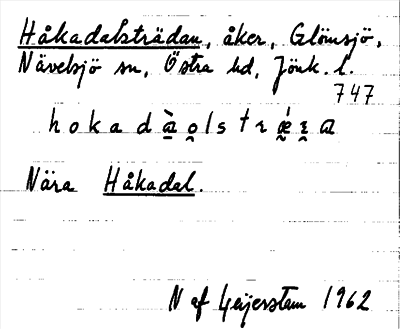 Håkadalsträdan, åker, Glömsjö,
Nävelsjö sn, Östra hd, Jönk. l.
747
hokada̠o̠lstrǽ̠ɛ̠a
Nära Håkadal.
N af Geijerstam 1962